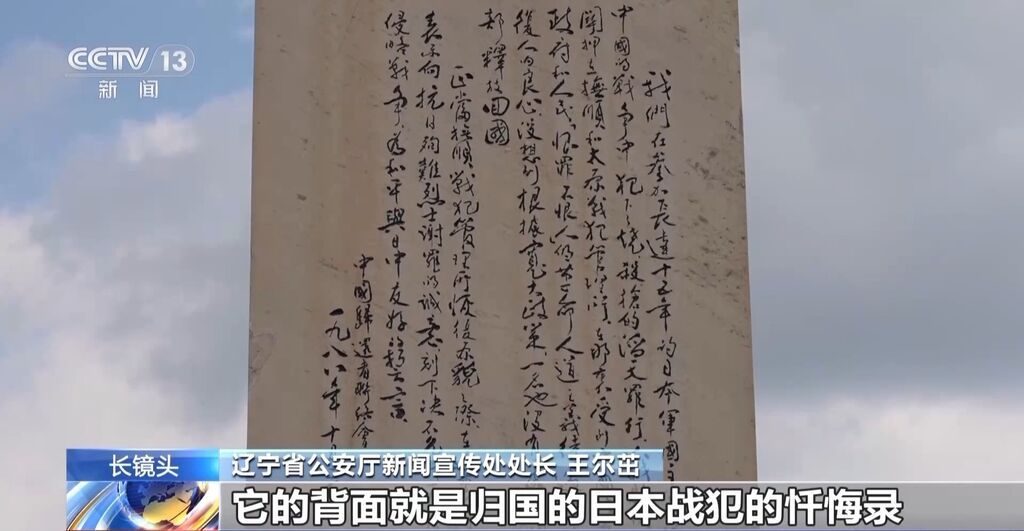 CCTV 13
新闻
我們在參加長達十五年的日本軍國主
中國的戰爭中犯下燒殺搶的滔天罪行
關押在撫順和太原戰犯管理所
政府和人民"恨罪不恨人"的革命人道主義
復人的良心沒想到根據寬大政策一名也沒有
都釋放回國
正當撫順戰犯管理所恢復原貌之際在
表示向抗日殉難烈士謝罪的誠意刻下決不
侵略戰爭為和平與日中友好的誓言
中國歸還者聯絡會
一九八八年十
长镜头
辽宁省公安厅新闻宣传处处长 王尔茁
它的背面就是归国的日本战犯的忏悔录